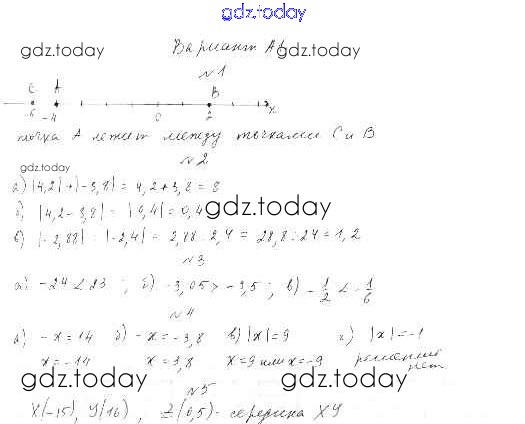 gdz.today
Вариант А1
gdz.today gdz.today
№1
C A B
-6 -4 0 2 x
точка А лежит между точками С и В
№2
gdz.today
а) |4,2|+|-3,8| = 4,2+3,8 = 8
б) |4,2-3,8| = |0,4| = 0,4
gdz.today
в) |-2,88| : |-2,4| = 2,88 : 2,4 = 28,8 : 24 = 1,2
№3
а) -24 < 23 ; б) -3,05 > -3,5 ; в) -1/2 < -1/6
№4
а) -x = 14 б) -x = -3,8 в) |x| = 9 г) |x| = -1
x = -14 x = 3,8 x = 9 или x = -9 решений нет
gdz.today gdz.today
№5
X(-15), Y(16), Z(0,5) - середина XY